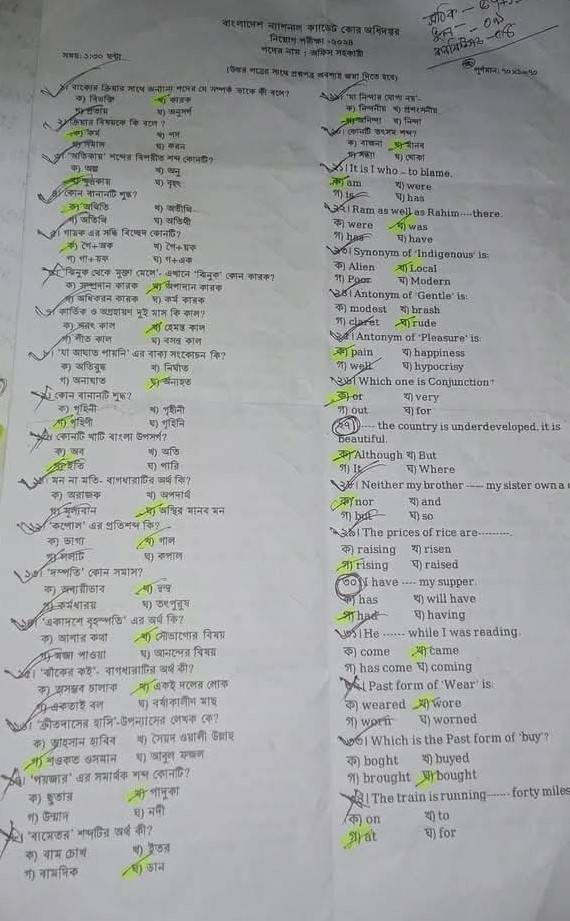 বাংলাদেশ ন্যাশনাল ক্যাডেট কোর অধিদপ্তর
নিয়োগ পরীক্ষা -২০২৪
পদের নাম : অফিস সহকারী
সময়: ১:৩০ ঘন্টা
(উত্তর পত্রের সাথে প্রশ্নপত্র অবশ্যই জমা দিতে হবে)
পূর্ণমান: ৭০X১=৭০
১। বাক্যের ক্রিয়ার সাথে অন্যান্য পদের যে সম্পর্ক তাকে কী বলে?
ক) বিভক্তি খ) কারক
গ) প্রত্যয় ঘ) অনুসর্গ
২। ক্রিয়ার বিষয়কে কি বলে ?
ক) কর্ম খ) পদ
গ) সমাস ঘ) করন
৩। 'অতিকায়' শব্দের বিপরীত শব্দ কোনটি?
ক) অল্প খ) অনু
গ) ক্ষুদ্রকায় ঘ) বৃহৎ
৪। কোন বানানটি শুদ্ধ?
৫। গায়ক এর সন্ধি বিচ্ছেদ কোনটি?
ক) গৈ+অক খ) গৈ+য়ক
গ) গা+য়ক ঘ) গ+এক
৬। 'ঝিনুক থেকে মুক্তা মেলে'- এখানে 'ঝিনুক' কোন কারক?
ক) সম্প্রদান কারক খ) অপাদান কারক
গ) অধিকরন কারক ঘ) কর্ম কারক
৭। কার্তিক ও অগ্রহায়ণ দুই মাস কি কাল?
ক) শরৎ কাল খ) হেমন্ত কাল
গ) শীত কাল ঘ) বসন্ত কাল
৮। 'যা আঘাত পায়নি' এর বাক্য সংকোচন কি?
গ) অনাঘাত ঘ) অনাহত
৯। কোন বানানটি শুদ্ধ?
ক) গৃহিনী খ) গৃহীনী
গ) গৃহিণী ঘ) গৃহিনি
১০। কোনটি খাটি বাংলা উপসর্গ?
ক) অব খ) অতি
গ) ইতি ঘ) পরি
১১। মন না মতি- বাগধারাটির অর্থ কি?
ক) অরাজক খ) অপদার্থ
গ) মূল্যবান ঘ) অস্থির মানব মন
১২। 'কপোল' এর প্রতিশব্দ কি?
ক) ভাগ্য খ) গাল
গ) ললাট ঘ) কপাল
১৩। 'দম্পতি' কোন সমাস?
ক) অব্যয়ীভাব খ) দ্বন্দ্ব
গ) কর্মধারয় ঘ) তৎপুরুষ
১৪। 'একাদশে বৃহস্পতি' এর অর্থ কি?
ক) আশার কথা খ) সৌভাগ্যের বিষয়
গ) মজা পাওয়া ঘ) আনন্দের বিষয়
১৫। 'ঝাঁকের কই'- বাগধারাটির অর্থ কী?
ক) অসম্ভব চালাক খ) একই দলের লোক
গ) একতাই বল ঘ) বর্ষাকালীন মাছ
১৬। 'ক্রীতদাসের হাসি'-উপন্যাসের লেখক কে?
ক) আহসান হাবিব খ) সৈয়দ ওয়ালী উল্লাহ
গ) শওকত ওসমান ঘ) আবুল ফজল
১৭। 'পয়জার' এর সমার্থক শব্দ কোনটি?
ক) ছুতার খ) পাদুকা
গ) উন্মাদ ঘ) নদী
১৮। 'বামেতর' শব্দটির অর্থ কী?
ক) বাম চোখ খ) ইতর
গ) বামদিক ঘ) ডান
১৯। 'যা নিন্দার যোগ্য নয়'-
গ) অনিন্দ্য ঘ) নিন্দা
২০। কোনটি তৎসম শব্দ?
২১। It is I who – to blame.
ক) am খ) were
গ) is ঘ) has
২২। Ram as well as Rahim----there.
ক) were খ) was
গ) has ঘ) have
২৩। Synonym of 'Indigenous' is:
ক) Alien খ) Local
গ) Poor ঘ) Modern
২৪। Antonym of 'Gentle' is:
ক) modest খ) brash
গ) claret ঘ) rude
২৫। Antonym of 'Pleasure' is:
ক) pain খ) happiness
গ) well ঘ) hypocrisy
২৬। Which one is Conjunction?
ক) or খ) very
গ) out ঘ) for
২৭। ---- the country is underdeveloped, it is
beautiful.
ক) Although খ) But
গ) It ঘ) Where
২৮। Neither my brother ---- my sister own a
ক) nor খ) and
গ) but ঘ) so
২৯। The prices of rice are---------.
ক) raising খ) risen
গ) rising ঘ) raised
৩০। I have ---- my supper
ক) has খ) will have
গ) had ঘ) having
৩১। He ------ while I was reading.
ক) come খ) came
গ) has come ঘ) coming
৩২। Past form of 'Wear' is:
ক) weared খ) wore
গ) worn ঘ) worned
৩৩। Which is the Past form of 'buy'?
ক) boght খ) buyed
গ) brought ঘ) bought
৩৪। The train is running------- forty miles
ক) on খ) to
গ) at ঘ) for